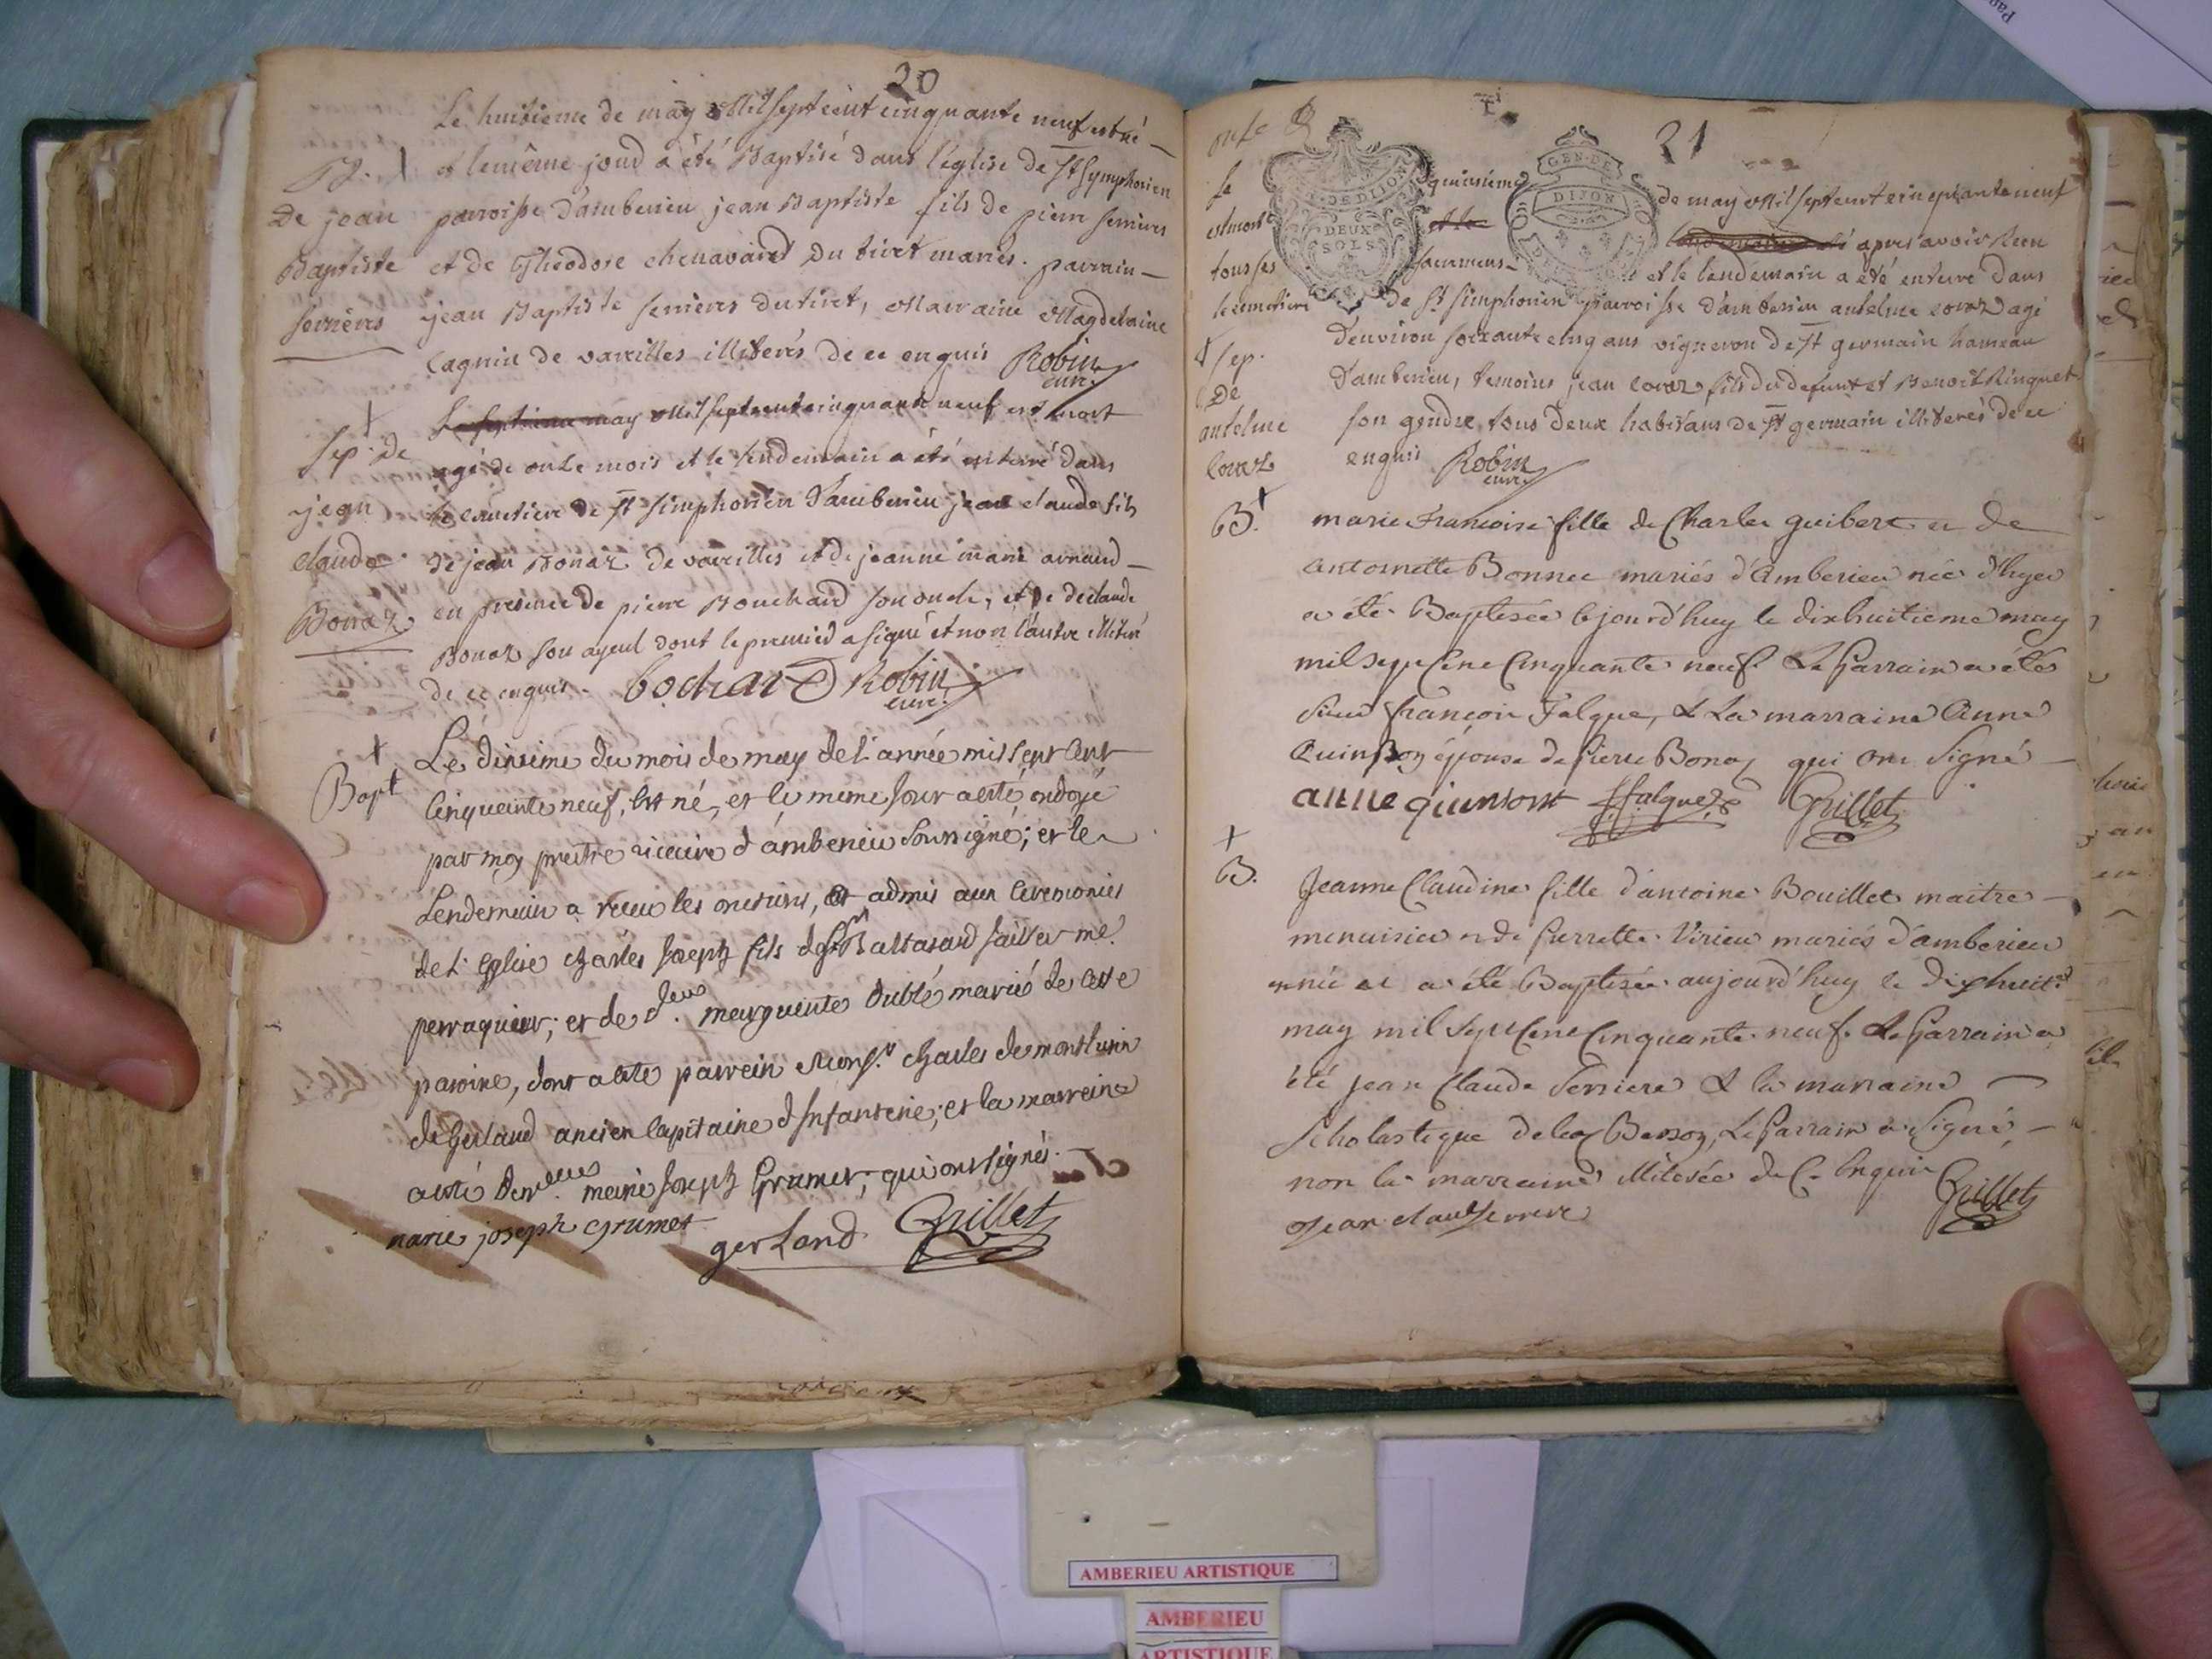 20
Le huitieme de may Mil sept cent cinquante neuf est né
B. et le même jour a été Baptisé dans l'église de St Symphorien
de jean parroisse d'amberieu jean Baptiste fils de pierre serrieres
Baptiste et de Théodore chenavard du tiret mariés. parrain
serrieres jean Baptiste serrieres du tiret, Marraine Magdelaine
Cagnin de vareilles illiterés de ce enquis Robin
curé
Le septieme may Mil sept cent cinquante neuf est mort
Sep. de agé de onze mois et le lendemain a été enterré dans
jean le cimetiere de St Simphorien d'amberieu jean claude fils
claude de jean Bonaz de vareilles et de jeanne marie arnaud
Bonaz en presence de pierre Bouchard son oncle, et de claude
Bonaz son ayeul dont le premier a signé et non l'autre illiteré
de ce enquis. bochard Robin
curé
Le dixieme du mois de may de l'année mil sept cent
Bapt cinquante neuf, est né, et le meme jour a esté ondoyé
par moy prestre vicaire d'amberieu soussigné; et le
Lendemain a receu les onctions, et admis aux ceremonies
de l'Eglise charles Joseph fils de Sr Baltasard
perraquier; et de d.lle marguerite Dublé mariés de cette
paroisse, dont a esté parrein Mons.r charles de montlusin
de Gerland ancien Capitaine d'Infanterie; et la marreine
a esté Dem.elle marie Joseph Grumet, qui ont signés.
marie joseph grumet gerland Grillet
21
GEN. DE DIJON
DEUX SOLS
GEN. DE
DIJON
Le quinsieme de may Mil sept cent cinquante neuf
est mort et le apres avoir reçu
tous ses sacremens et le lendemain a été enterré dans
le cimetiere de St Simphorien parroisse d'amberieu antelme covaz agé
d'environ soixante cinq ans vigneron de St germain hameau
Sep. d'amberieu, temoins jean covaz fils du defunt et Benoit Ringuet
De
antelme son gendre tous deux habitans de St germain illiterés de ce
covaz enquis Robin
curé
B. marie Francoise fille de Charles guibert et de
antoinette Bonnet mariés d'amberieu née d'hyer
a été Baptisée cejourd'huy le dixhuitieme may
mil sept Cent Cinquante neuf. Le Parrain a été
sieur françois Falque, & La marraine Anne
Quinson épouse de Pierre Bonaz qui ont Signé
anne quinsont ffalque Grillet
B. Jeanne Claudine fille d'antoine Bouillet maitre
menuisier et de Pierrette Virieu mariés d'amberieu
née et a été Baptisée aujourd'huy le dixhuit.e
may mil sept Cent Cinquante neuf. Le Parrain a
été jean Claude Serriere & la marraine
Scholastique Besson, Le Parrain a Signé,
non la marraine illiterée de Ce Enquise Grillet
Jean claude serriere
AMBERIEU ARTISTIQUE
AMBERIEU
ARTISTIQUE